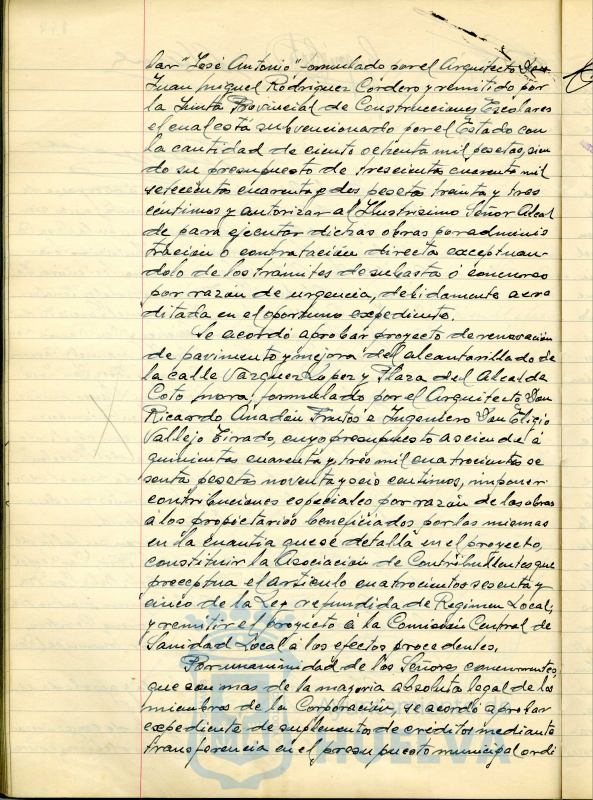 lar "José Antonio" formulado por el Arquitecto Don
Juan Miguel Rodríguez Cordero y remitido por
la Junta Provincial de Construcciones Escolares
el cual está subvencionado por el Estado con
la cantidad de ciento ochenta mil pesetas, sien
do su presupuesto de trescientas cuarenta mil
setecientas cuarenta y dos pesetas treinta y tres
céntimos y autorizar al Ilustrísimo Señor Alcal
de para ejecutar dichas obras por adminis
tración o contratación directa exceptuan-
dolo de los trámites de subasta ó concurso
por razón de urgencia, debidamente acre
ditada en el oportuno expediente.
Se acordó aprobar proyecto de renovación
de pavimento y mejora del alcantarillado de
la calle Vazquez Lopez y Plaza del Alcalde
Coto Mora, formulado por el Arquitecto Don
Ricardo Anadón Frutos e Ingeniero Don Eligio
Vallejo Tirado, cuyo presupuesto asciende á
quinientas cuarenta y tres mil cuatrocientas se
senta pesetas noventa y seis centimos, imponer
contribuciones especiales por razón de las obras
á los propietarios beneficiados por las mismas
en la cuantía que se detalla en el proyecto,
constituir la Asociación de Contribuyentes que
preceptua el artículo cuatrocientos sesenta y
cinco de la Ley refundida de Regimen Local,
y remitir el proyecto á la Comisión Central de
Sanidad Local á los efectos procedentes.
Por unanimidad de los Señores concurrentes,
que son mas de la mayoría absoluta legal de los
miembros de la Corporación, se acordó aprobar
expediente de suplementos de créditos mediante
transferencia en el presupuesto municipal ordi
HUELVA